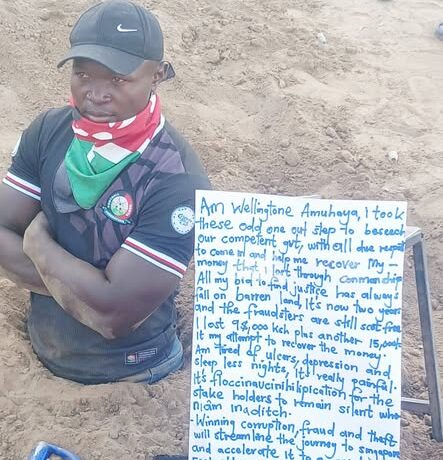 Am Wellingtone Amuhaya, I took
these odd one out step to beseech
our competent gvt, with all due respect
to come in and help me recover My
money that I lost through conmanship
All my bid to find justice has always
fall on barren land, it's now two years
and the fraudsters are still scot free
I lost 98,000 ksh plus another 15,000
it my attempt to recover the money.
Am tired of ulcers, depression and
sleep less nights, it's really painful.
it's floccinaucinihilipilication for the
stake holders to remain silent when
niam inaditch.
- Winning corruption, fraud and theft
will streamline the journey to singapore
and accelerate it to